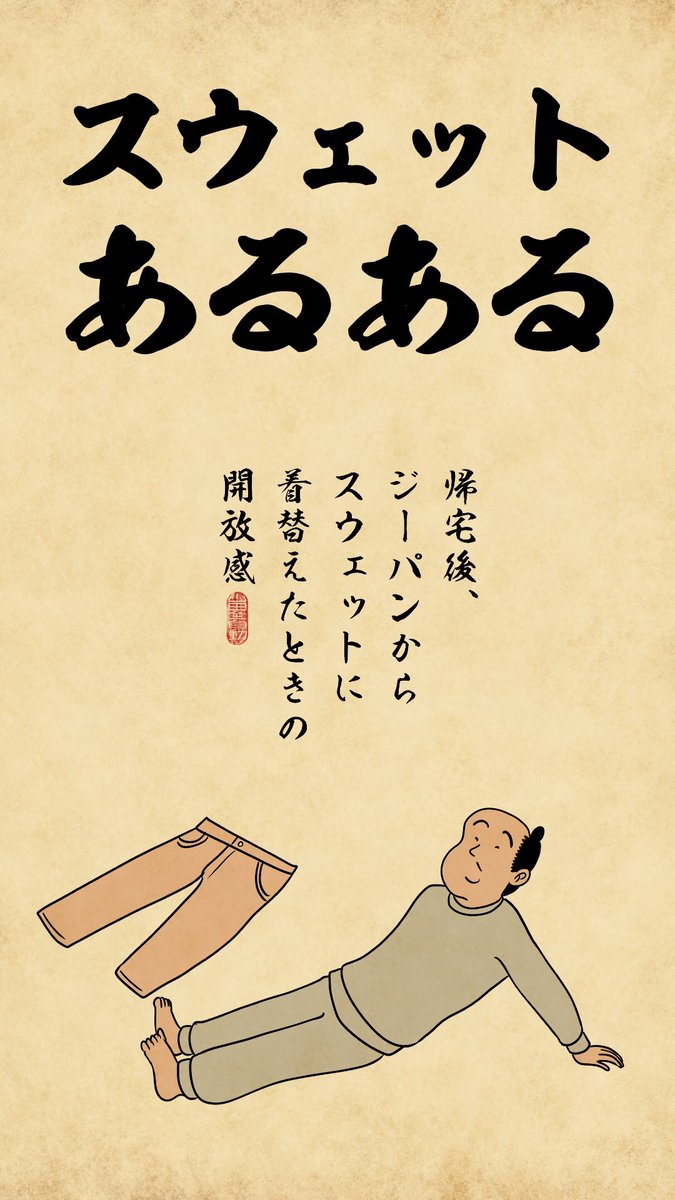 スウェット
あるある
帰宅後、
ジーパンから
スウェットに
着替えたときの
開放感